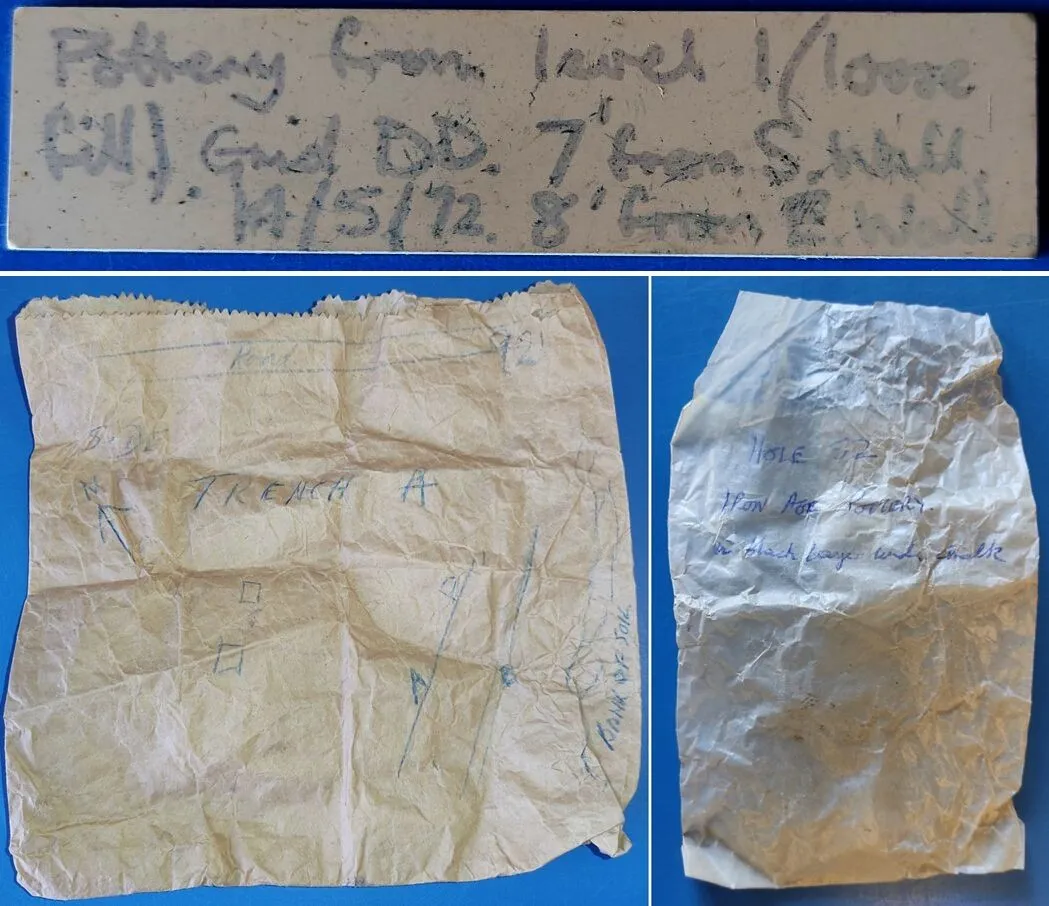 Pottery from level 1 (loose
fill). Grid DD. 7' from S. Wall.
14/5/72. 8' from E. Wall.
92'
N
TRENCH A
A
BANK OF SOIL
HOLE
IRON AGE POTTERY.
in black layer under chalk